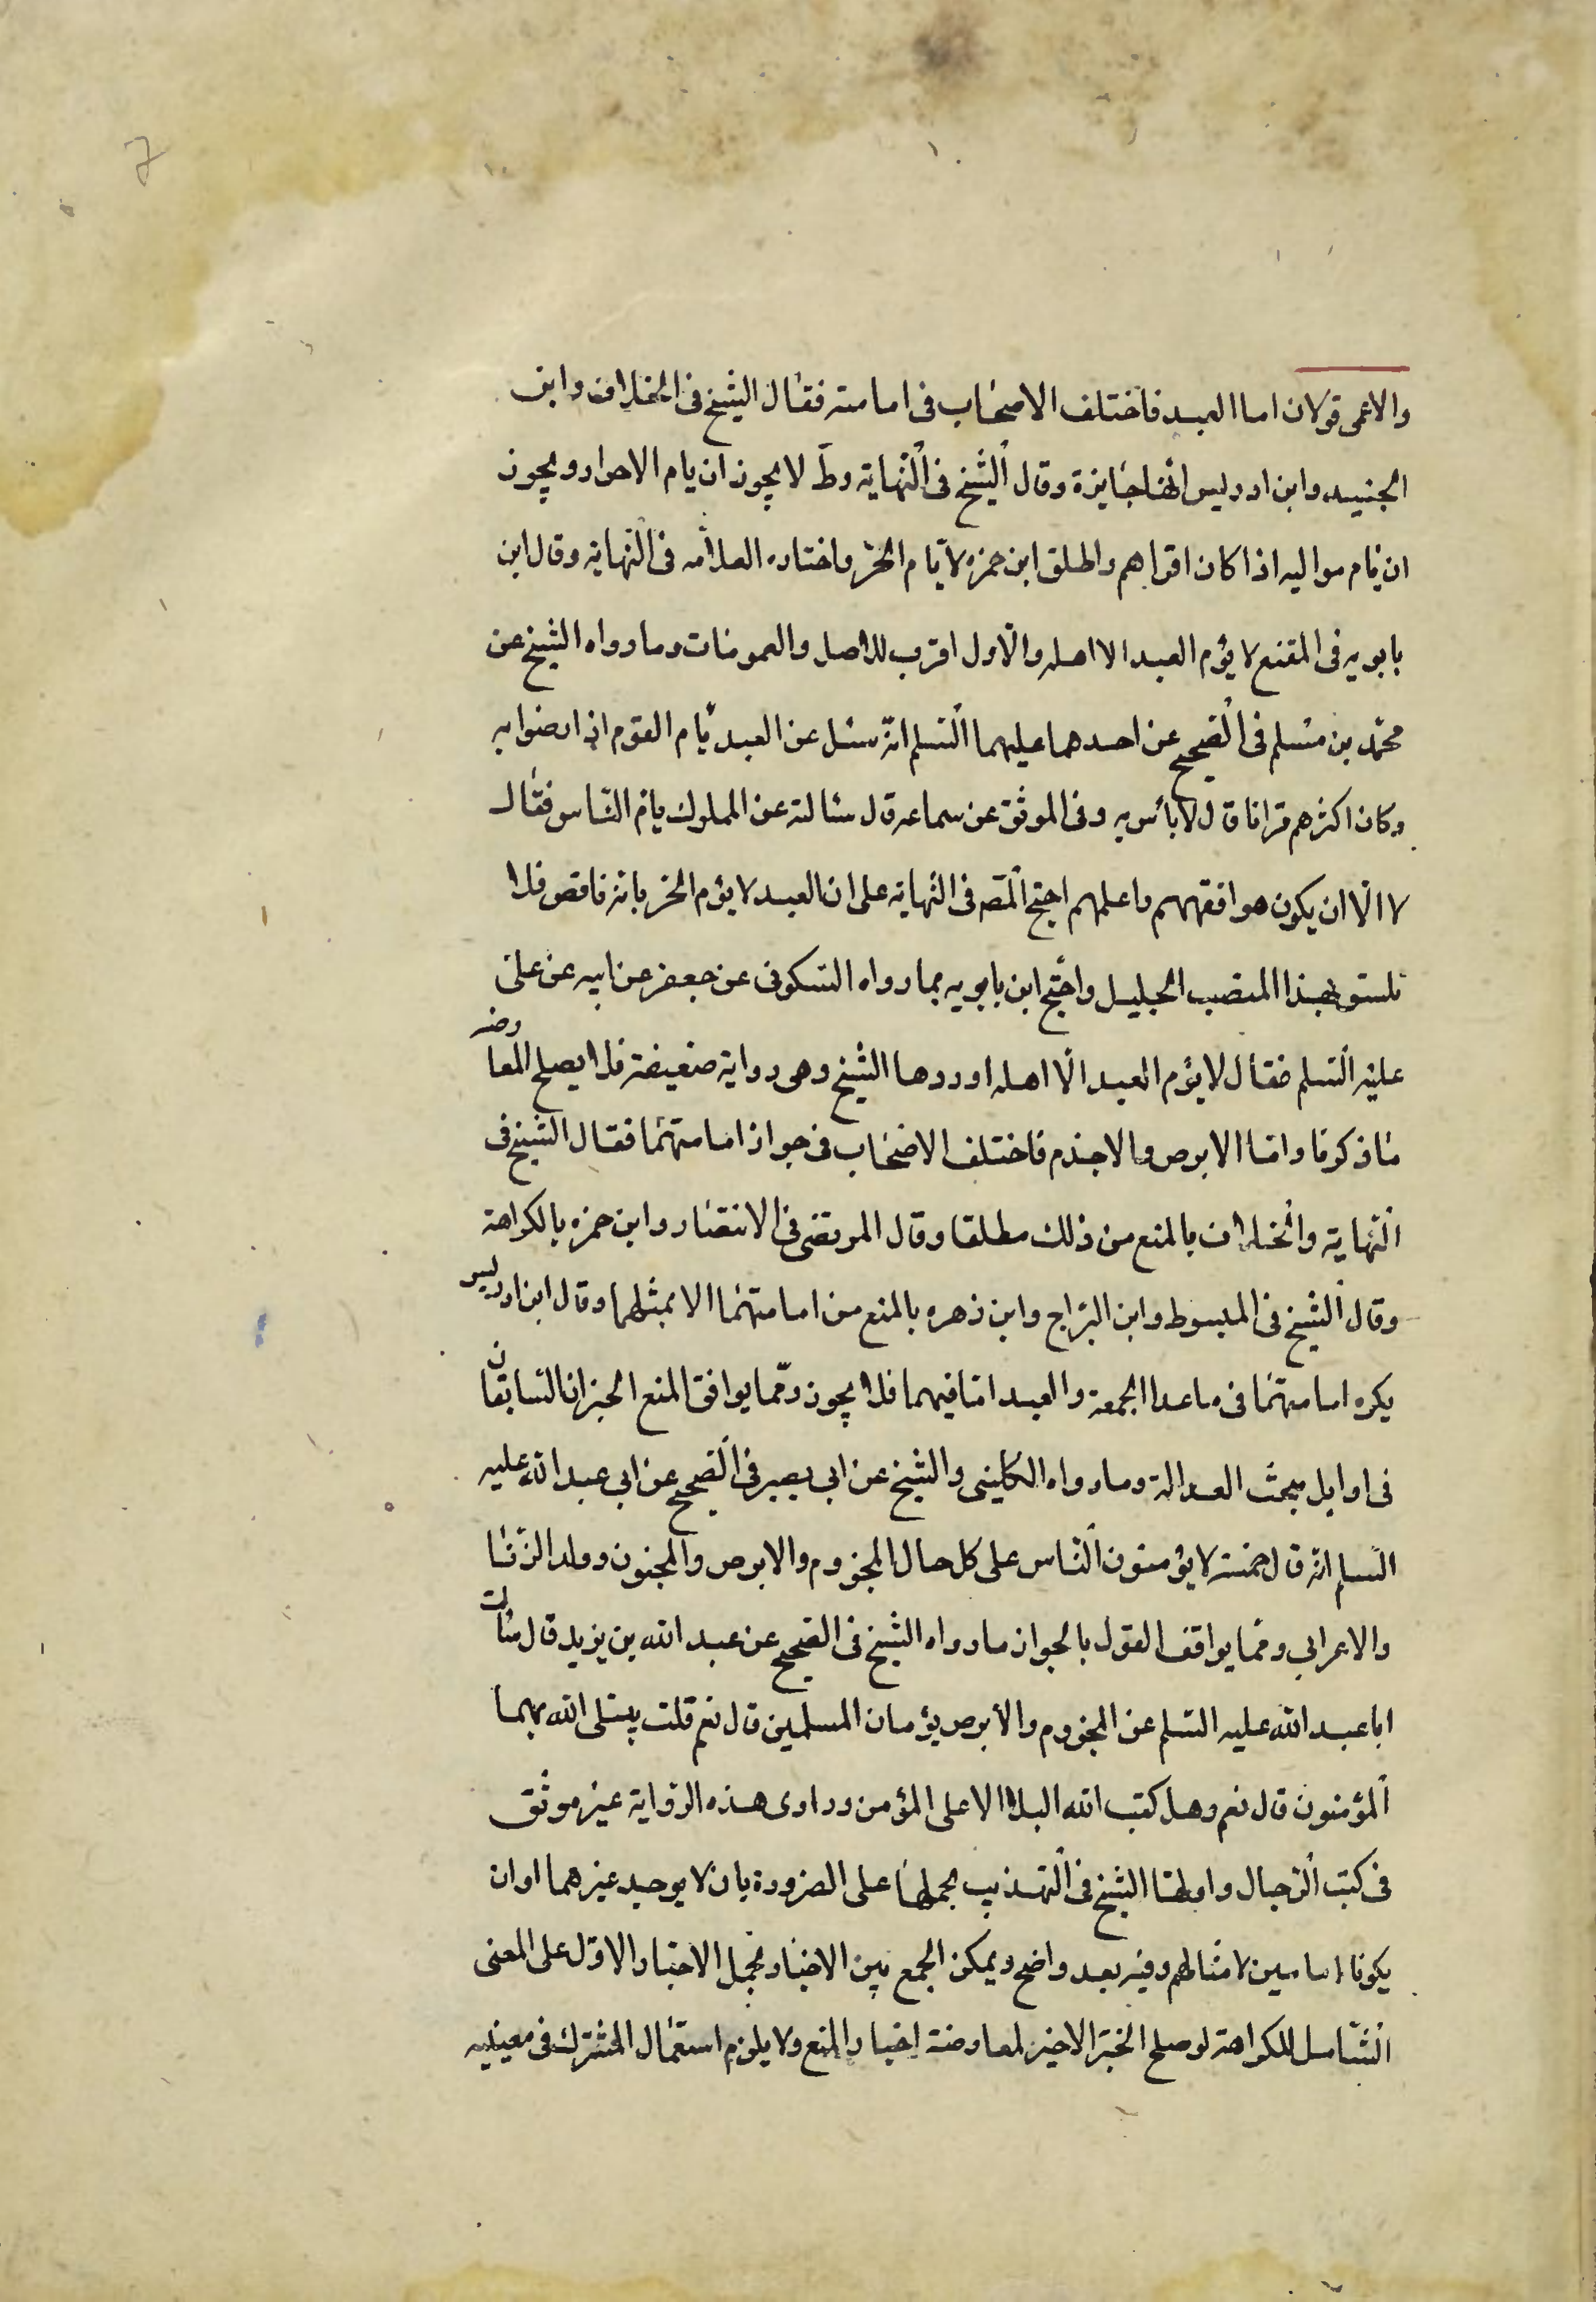 7
والاعمى قولان اما العبد فاختلف الاصحاب فى امامته فقال الشيخ فى الخلاف وابن
الجنيد وابن ادريس انها جايزة وقال الشيخ فى النهاية وط لا يجوز ان يام الاحرار ويجوز
ان يام مواليه اذا كان اقراهم واطلق ابن حمزه لا يام الحر واختاره العلامه فى النهاية وقال ابن
بابويه فى المقنع لا يؤم العبد الا اهله والاول اقرب للاصل والعمومات وما رواه الشيخ عن
محمد بن مسلم فى الصحيح عن احدهما عليهما السلم انه سئل عن العبد يام القوم اذا رضوا به
وكان اكثرهم قرانا قال لا بأس به وفى الموثق عن سماعه قال سئالته عن المملوك يام الناس فقال
لا الا ان يكون هو افقههم واعلمهم احتج المصه فى النهاية على ان العبد لا يؤم الحر بانه ناقص فلا
يستو بهذا المنصب الجليل واحتج ابن بابويه بما رواه السكونى عن جعفر عن ابيه عن على
عليه السلم فقال لا يؤم العبد الا اهله اوردها الشيخ وهى رواية ضعيفة فلا يصلح لمعارضه
ما ذكرنا واما الابرص والاجذم فاختلف الاصحاب فى جواز امامتهما فقال الشيخ فى
النهاية والخلاف بالمنع من ذلك مطلقا وقال المرتضى فى الانتصار وابن حمزه بالكراهة
وقال الشيخ فى المبسوط وابن البراج وابن زهره بالمنع من امامتهما الا بمثلهما وقال ابن ادريس
يكره امامتهما فى ما عدا الجمعة والعيد اما فيهما فلا يجوز ومما يوافق المنع الخبران السابقان
فى اوايل مبحث العدالة وما رواه الكلينى والشيخ عن ابى بصير فى الصحيح عن ابى عبد الله عليه
السلم انه قال خمسة لا يؤمنون الناس على كل حال المجزوم والابرص والمجنون وولد الزنا
والاعرابى ومما يوافق القول بالجواز ما رواه الشيخ فى الصحيح عن عبد الله بن يزيد قال سئالت
ابا عبد الله عليه السلم عن المجزوم والابرص يؤمان المسلمين قال نعم قلت يبتلى الله بهما
المؤمنون قال نعم وهل كتب الله البلا الا على المؤمن وراوى هذه الرواية غير موثق
فى كتب الرجال واولها الشيخ فى التهذيب بحملها على الضرورة بان لا يوجد غيرهما او ان
يكونا امامين لامثالهم وفيه بعد واضح ويمكن الجمع بين الاخبار بحمل الاخبار الاول على المعنى
الشامل للكراهة لو صلح الخبر الاخير لمعاوضة اخبار المنع ولا يلزم استعمال المشترك فى معينيه